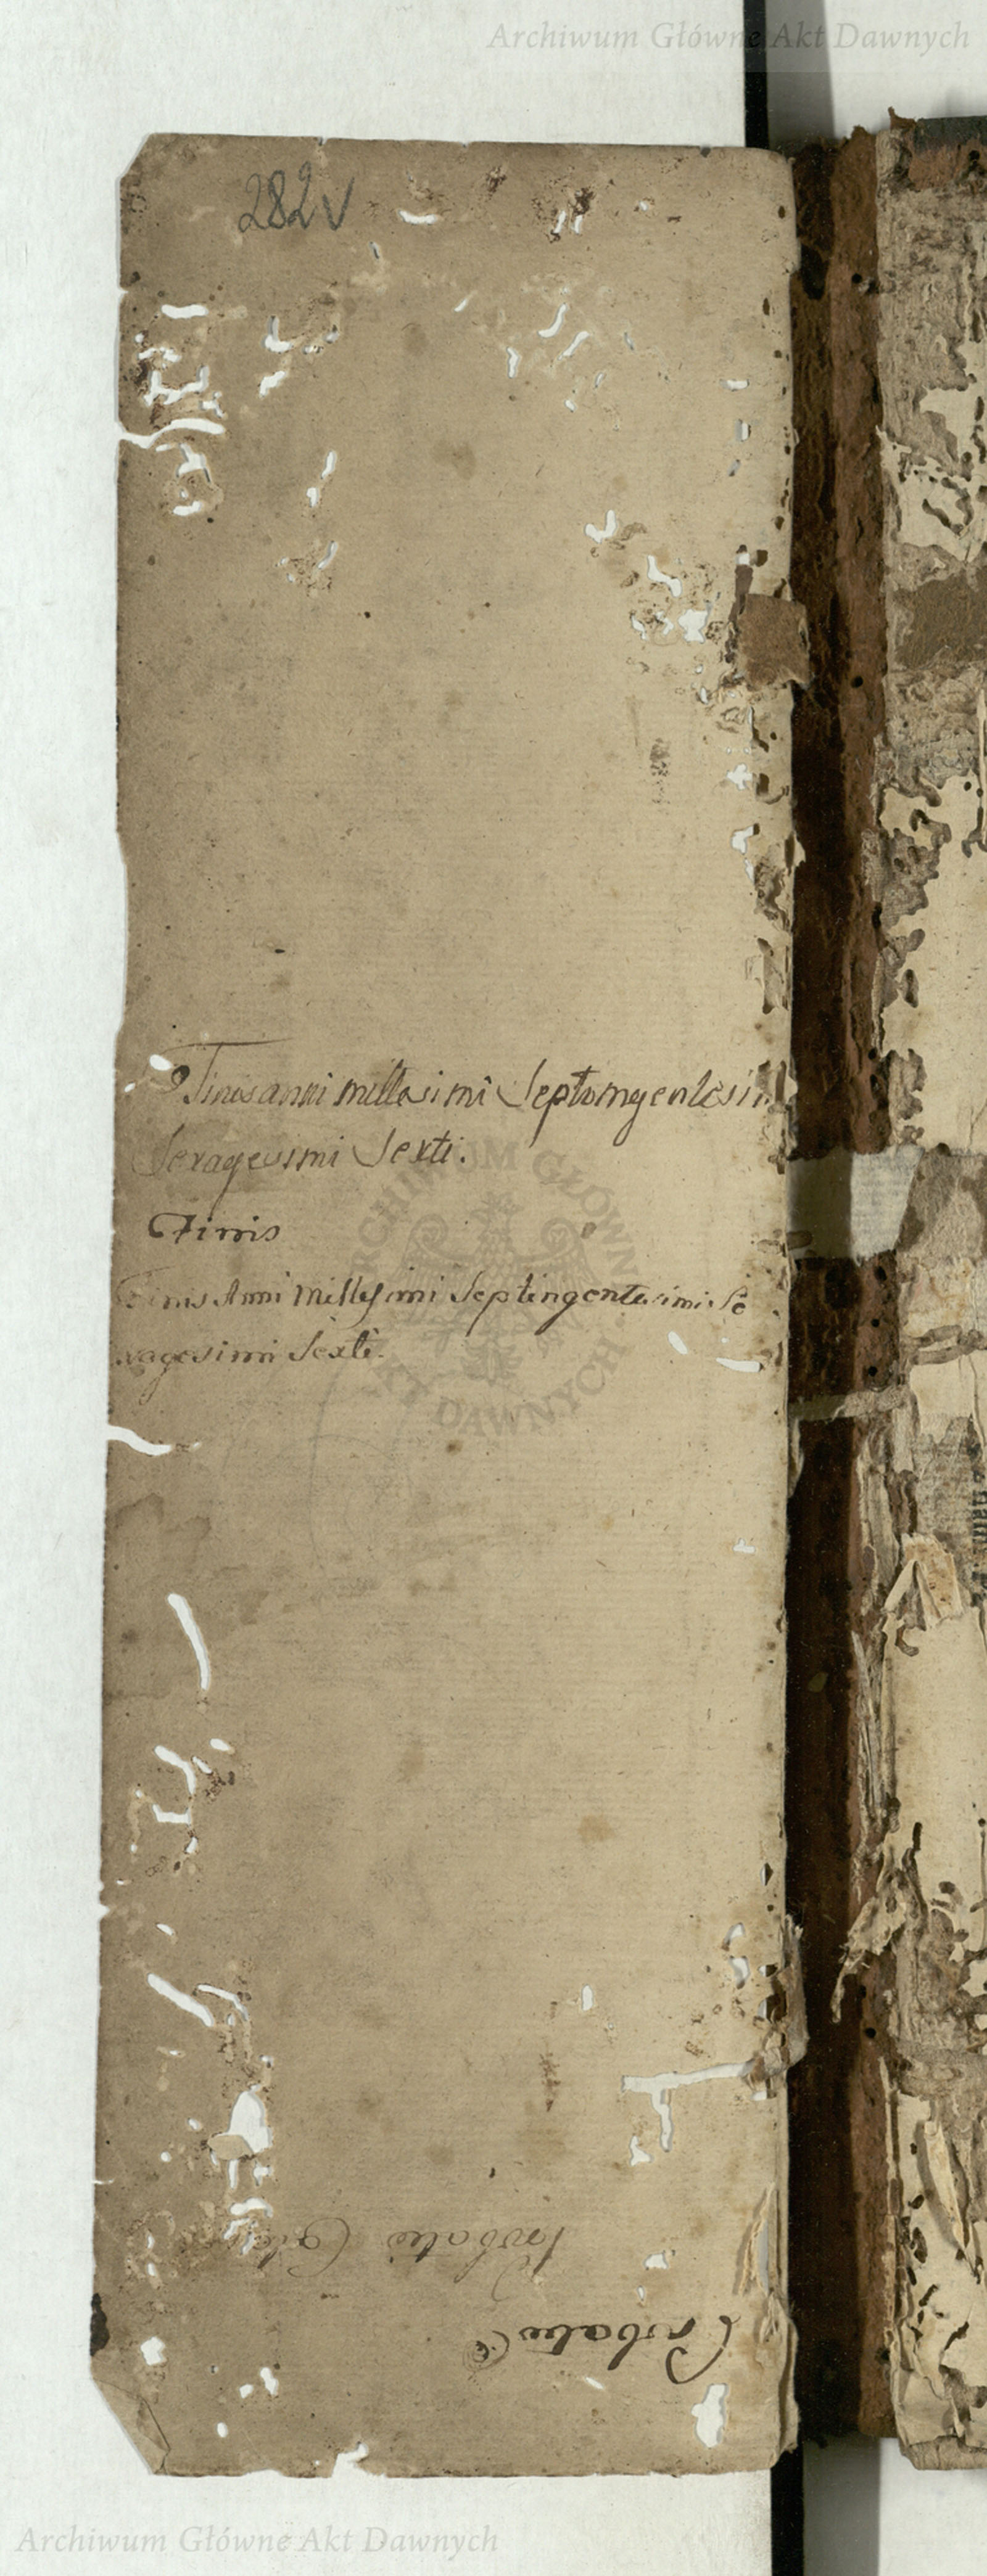 Archiwum Główne Akt Dawnych
282v
Finis anni millesimi Septemgentesim
Sexagesimi Sexti.
Finis
Finis Anni Millesimi Septingentesimi Se
xagesimi Sexti.
ARCHIWUM GŁÓWNE AKT DAWNYCH
Probatio
Probatio
Archiwum Główne Akt Dawnych